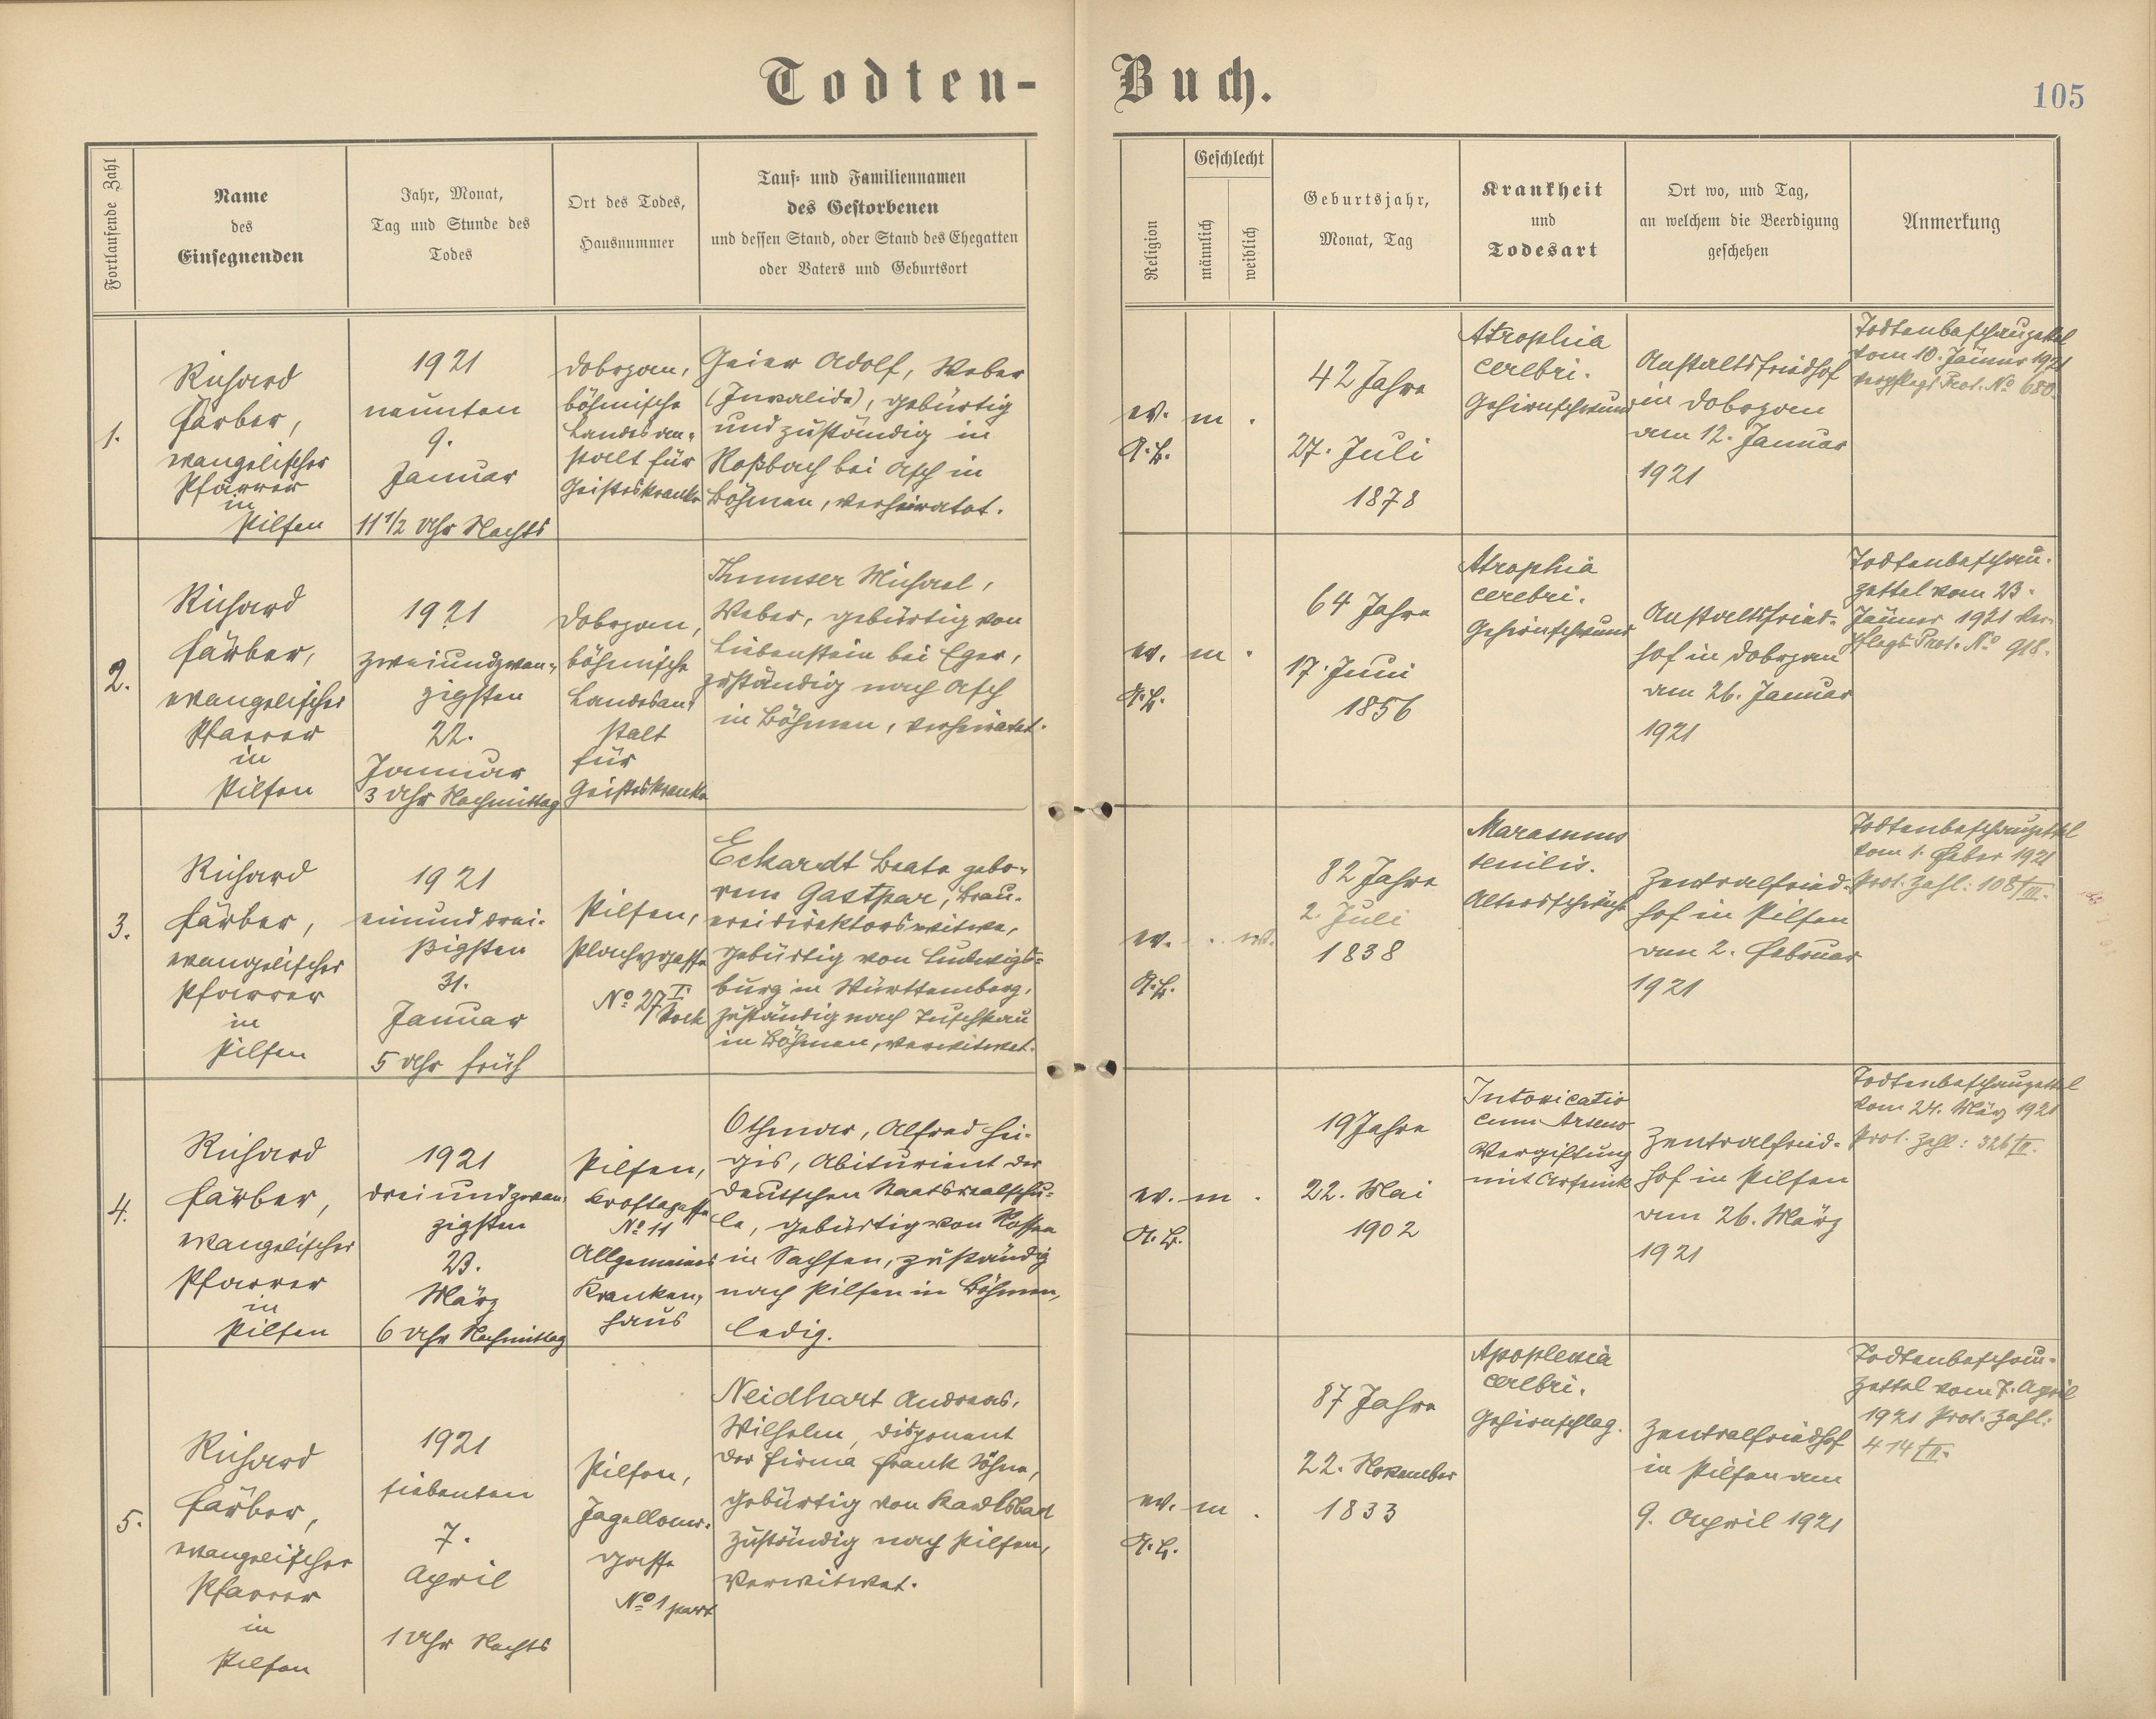 Todten-
Buch.
105
Fortlaufende Zahl
Name
des
Einsegnenden
Jahr, Monat,
Tag und Stunde des
Todes
Ort des Todes,
Hausnummer
Tauf- und Familiennamen
des Gestorbenen
und dessen Stand, oder Stand des Ehegatten
oder Vaters und Geburtsort
Religion
Geschlecht
männlich
weiblich
Geburtsjahr,
Monat, Tag
Krankheit
und
Todesart
Ort wo, und Tag,
an welchem die Beerdigung
geschehen
Anmerkung
1.
Richard
Färber,
evangelischer
Pfarrer
in
Pilsen
1921
neunten
9.
Januar
11 1/2 Uhr Nachts
Dobrzan,
böhmische
Landesan-
stalt für
Geisteskranke
Geier Adolf, Weber
(Invalide), gebürtig
und zuständig in
Roßbach bei Asch in
Böhmen, verheiratet.
ev.
A.B.
m
.
42 Jahre
27. Juli
1878
Atrophia
cerebri.
Gehirnschwund
Anstaltsfriedhof
in Dobrzan
am 12. Januar
1921
Todtenbeschauzettel
vom 10. Jänner 1921
Verpflegs Prot. No 680.
2.
Richard
Färber,
evangelischer
Pfarrer
in
Pilsen
1921
zweiundzwan-
zigsten
22.
Januar
3 Uhr Nachmittag
Dobrzan,
böhmische
Landesan-
stalt
für
Geisteskranke
Thumser Michael,
Weber, gebürtig von
Liebenstein bei Eger,
zuständig nach Asch
in Böhmen, verheiratet.
ev.
A.B.
m
.
64 Jahre
17. Juni
1856
Atrophia
cerebri.
Gehirnschwund
Anstaltsfried-
hof in Dobrzan
am 26. Januar
1921
Todtenbeschau-
zettel vom 23.
Jänner 1921 Ver-
pflegs Prot. No 918.
3.
Richard
Färber,
evangelischer
Pfarrer
in
Pilsen
1921
einunddrei-
ßigsten
31.
Januar
5 Uhr früh
Pilsen,
Plachygasse
No 27 I.
Stock
Eckardt Beate gebo-
rene Gastpar, Brau-
ereidirektorswitwe,
gebürtig von Ludwigs-
burg in Württemberg,
zuständig nach Tuschkau
in Böhmen, verwitwet.
ev.
A.B.
.
w.
82 Jahre
2. Juli
1838
Marasmus
senilis.
Altersschwäche
Zentralfried-
hof in Pilsen
am 2. Februar
1921
Todtenbeschauzettel
vom 1. Feber 1921
Prot. Zahl: 108/III.
4.
Richard
Färber,
evangelischer
Pfarrer
in
Pilsen
1921
dreiundzwan-
zigsten
23.
März
6 Uhr Nachmittag
Pilsen,
No 11
Allgemeines
Kranken-
haus
Othmar, Alfred
Abiturient der
deutschen Staatsrealschu-
le, gebürtig von Nossen
in Sachsen, zuständig
nach Pilsen in Böhmen,
ledig.
ev.
A.B.
m
.
19 Jahre
22. Mai
1902
Intoxicatio
cum Arseno
Vergiftung
mit Arsenik
Zentralfried-
hof in Pilsen
am 26. März
1921
Todtenbeschauzettel
vom 24. März 1921
Prot. Zahl: 326/II.
5.
Richard
Färber,
evangelischer
Pfarrer
in
Pilsen
1921
siebenten
7.
April
1 Uhr Nachts
Pilsen,
Jagellonen-
gasse
No 1 part
Neidhart Andreas,
Wilhelm, Disponent
der Firma Frank Söhne,
gebürtig von Karlsbad
zuständig nach Pilsen,
verwitwet.
ev.
A.B.
m
.
87 Jahre
22. November
1833
Apoplexia
cerebri.
Gehirnschlag.
Zentralfriedhof
in Pilsen am
9. April 1921
Todtenbeschau-
zettel vom 7. April
1921 Prot. Zahl:
414/II.